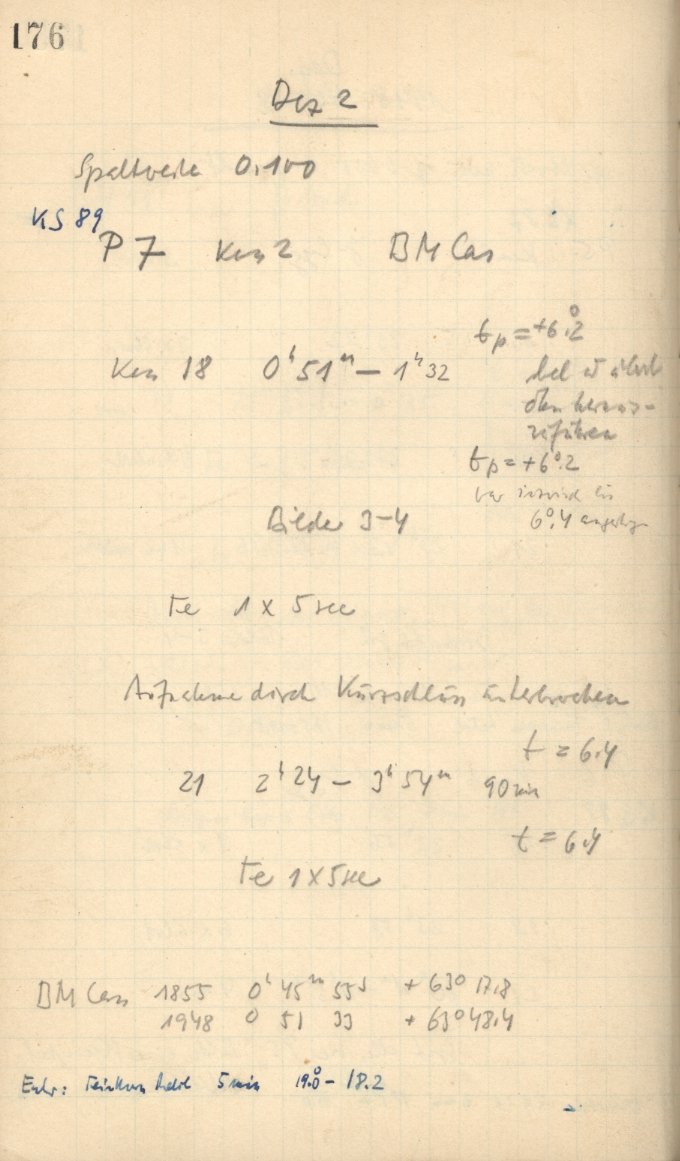 176
Dez 2
Spaltweite 0.100
KS 89
P 7 Ken 2 BM Cas
t_p = +6°.2
Ken 18 0ʰ51ᵐ – 1ʰ32
t_p = +6°.2
6°.4
Bilder 3-4
Fe 1 x 5 sec
Aufnahme durch Kurzschluss unterbrochen
t = 6.4
21 2ʰ24 – 3ʰ54ᵐ 90 min
t = 6.4
Fe 1 x 5 sec
BM Cass 1855 0ʰ 45ᵐ 55ˢ + 63° 17.8
1948 0 51 33 + 63° 48.4
5 min 19.°0 – 18.2